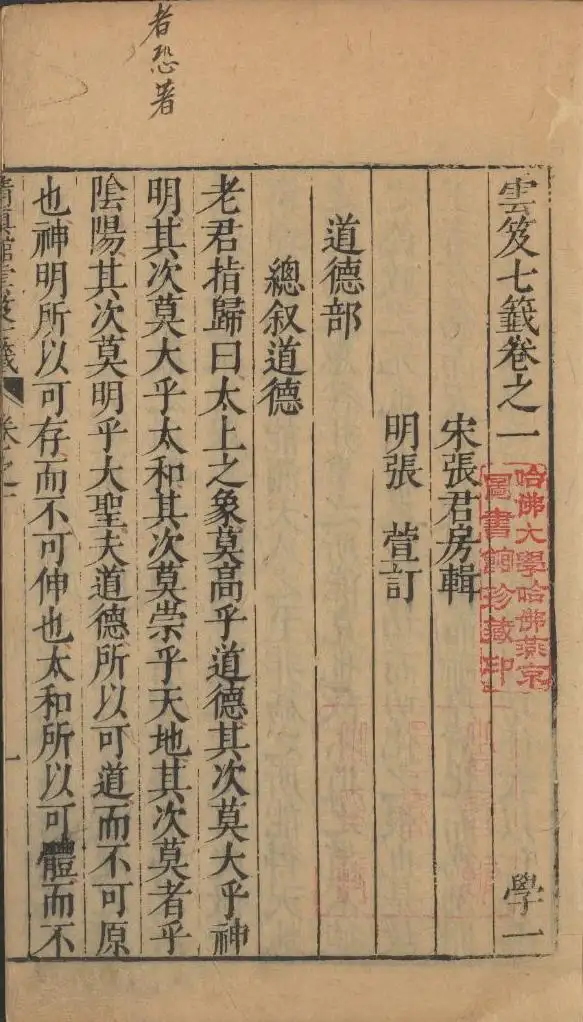 者恐著
雲笈七籤卷之一
學一
哈佛大學哈佛燕京
圖書館珍藏印
宋張君房輯
明張 萱訂
道德部
總叙道德
老君指歸曰太上之象莫高乎道德其次莫大乎神
明其次莫大乎太和其次莫崇乎天地其次莫者乎
陰陽其次莫明乎大聖夫道德所以可道而不可原
也神明所以可存而不可伸也太和所以可體而不
清真館雲笈七籤
卷之一
一